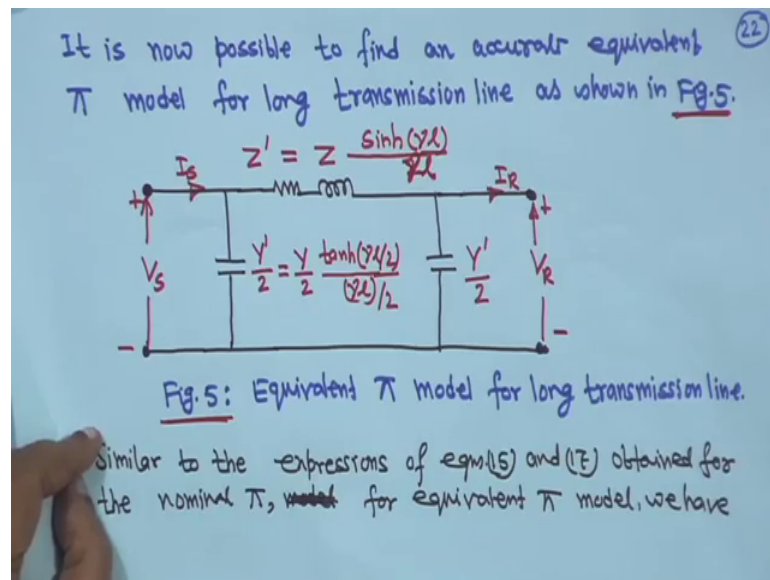 22
It is now possible to find an accurate equivalent
π model for long transmission line as shown in Fg.5.
Z' = Z sinh(γl) / γl
I_S
I_R
+
+
V_S
Y'/2 = Y/2 tanh(γl/2) / (γl)/2
Y'/2
V_R
-
-
Fig. 5: Equivalent π model for long transmission line.
Similar to the expressions of eqn.(15) and (17) obtained for
the nominal π, for equivalent π model, we have